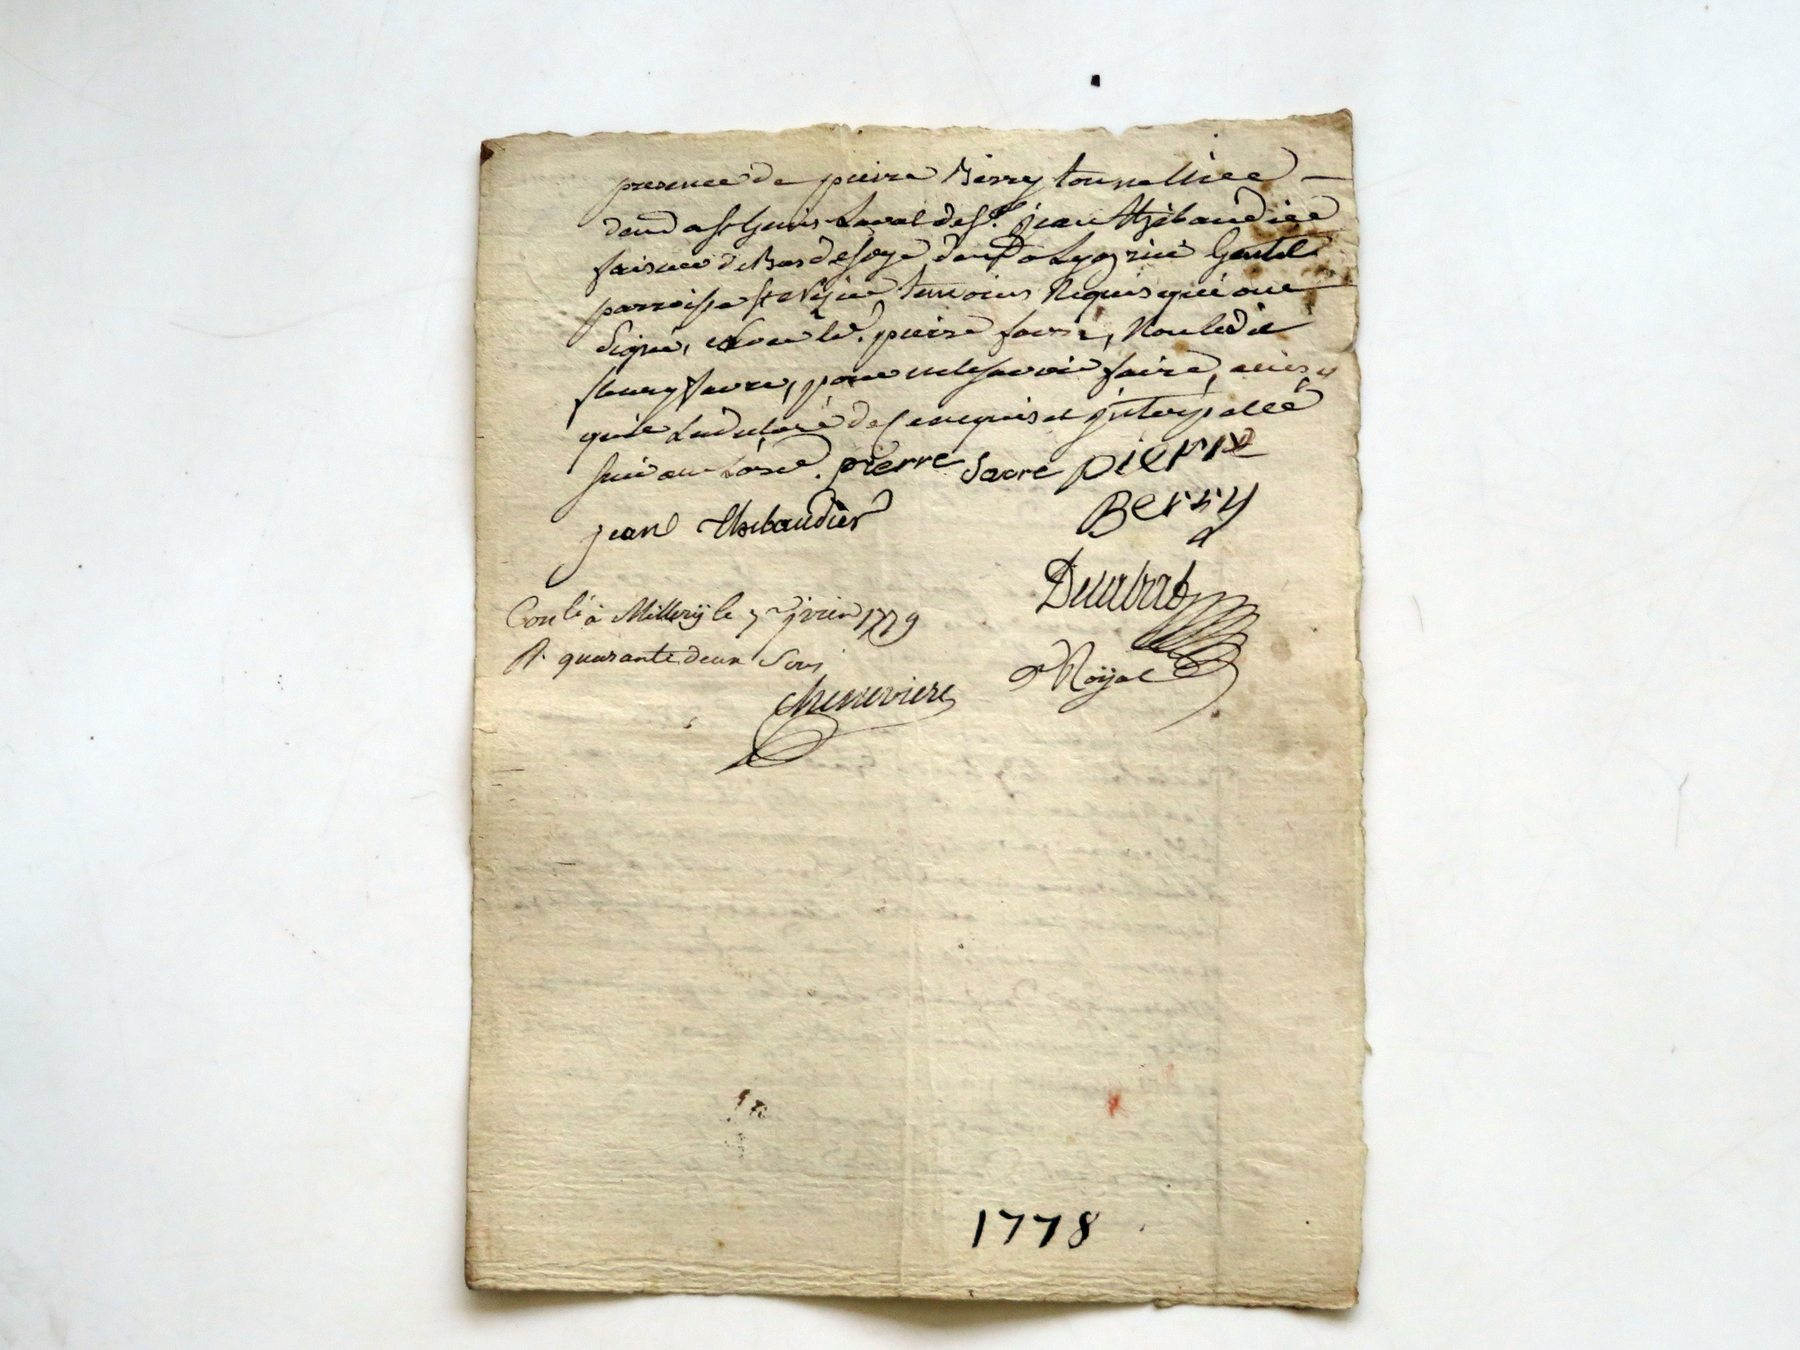 presence de pierre Berry tonnellier
dem.t a St Genis Laval de S.r jean thibaudier
faiseur de Bas de soye dem.t a Lyon rue Gentil
parroisse St Nizier temoins Requis qui ont
signé, avec le d. pierre favre, Non ledit
fleury favre, pour ne le savoir faire, ainsy
quil la declaré de ce enquis et jnterpellé
suivant Lors.ce pierre Favre pierre
Berry
jean thibaudier
Con.lé à Millery le 7 janvier 1779
R. quarante deux Sous
Cheneviere
N Royal
1778